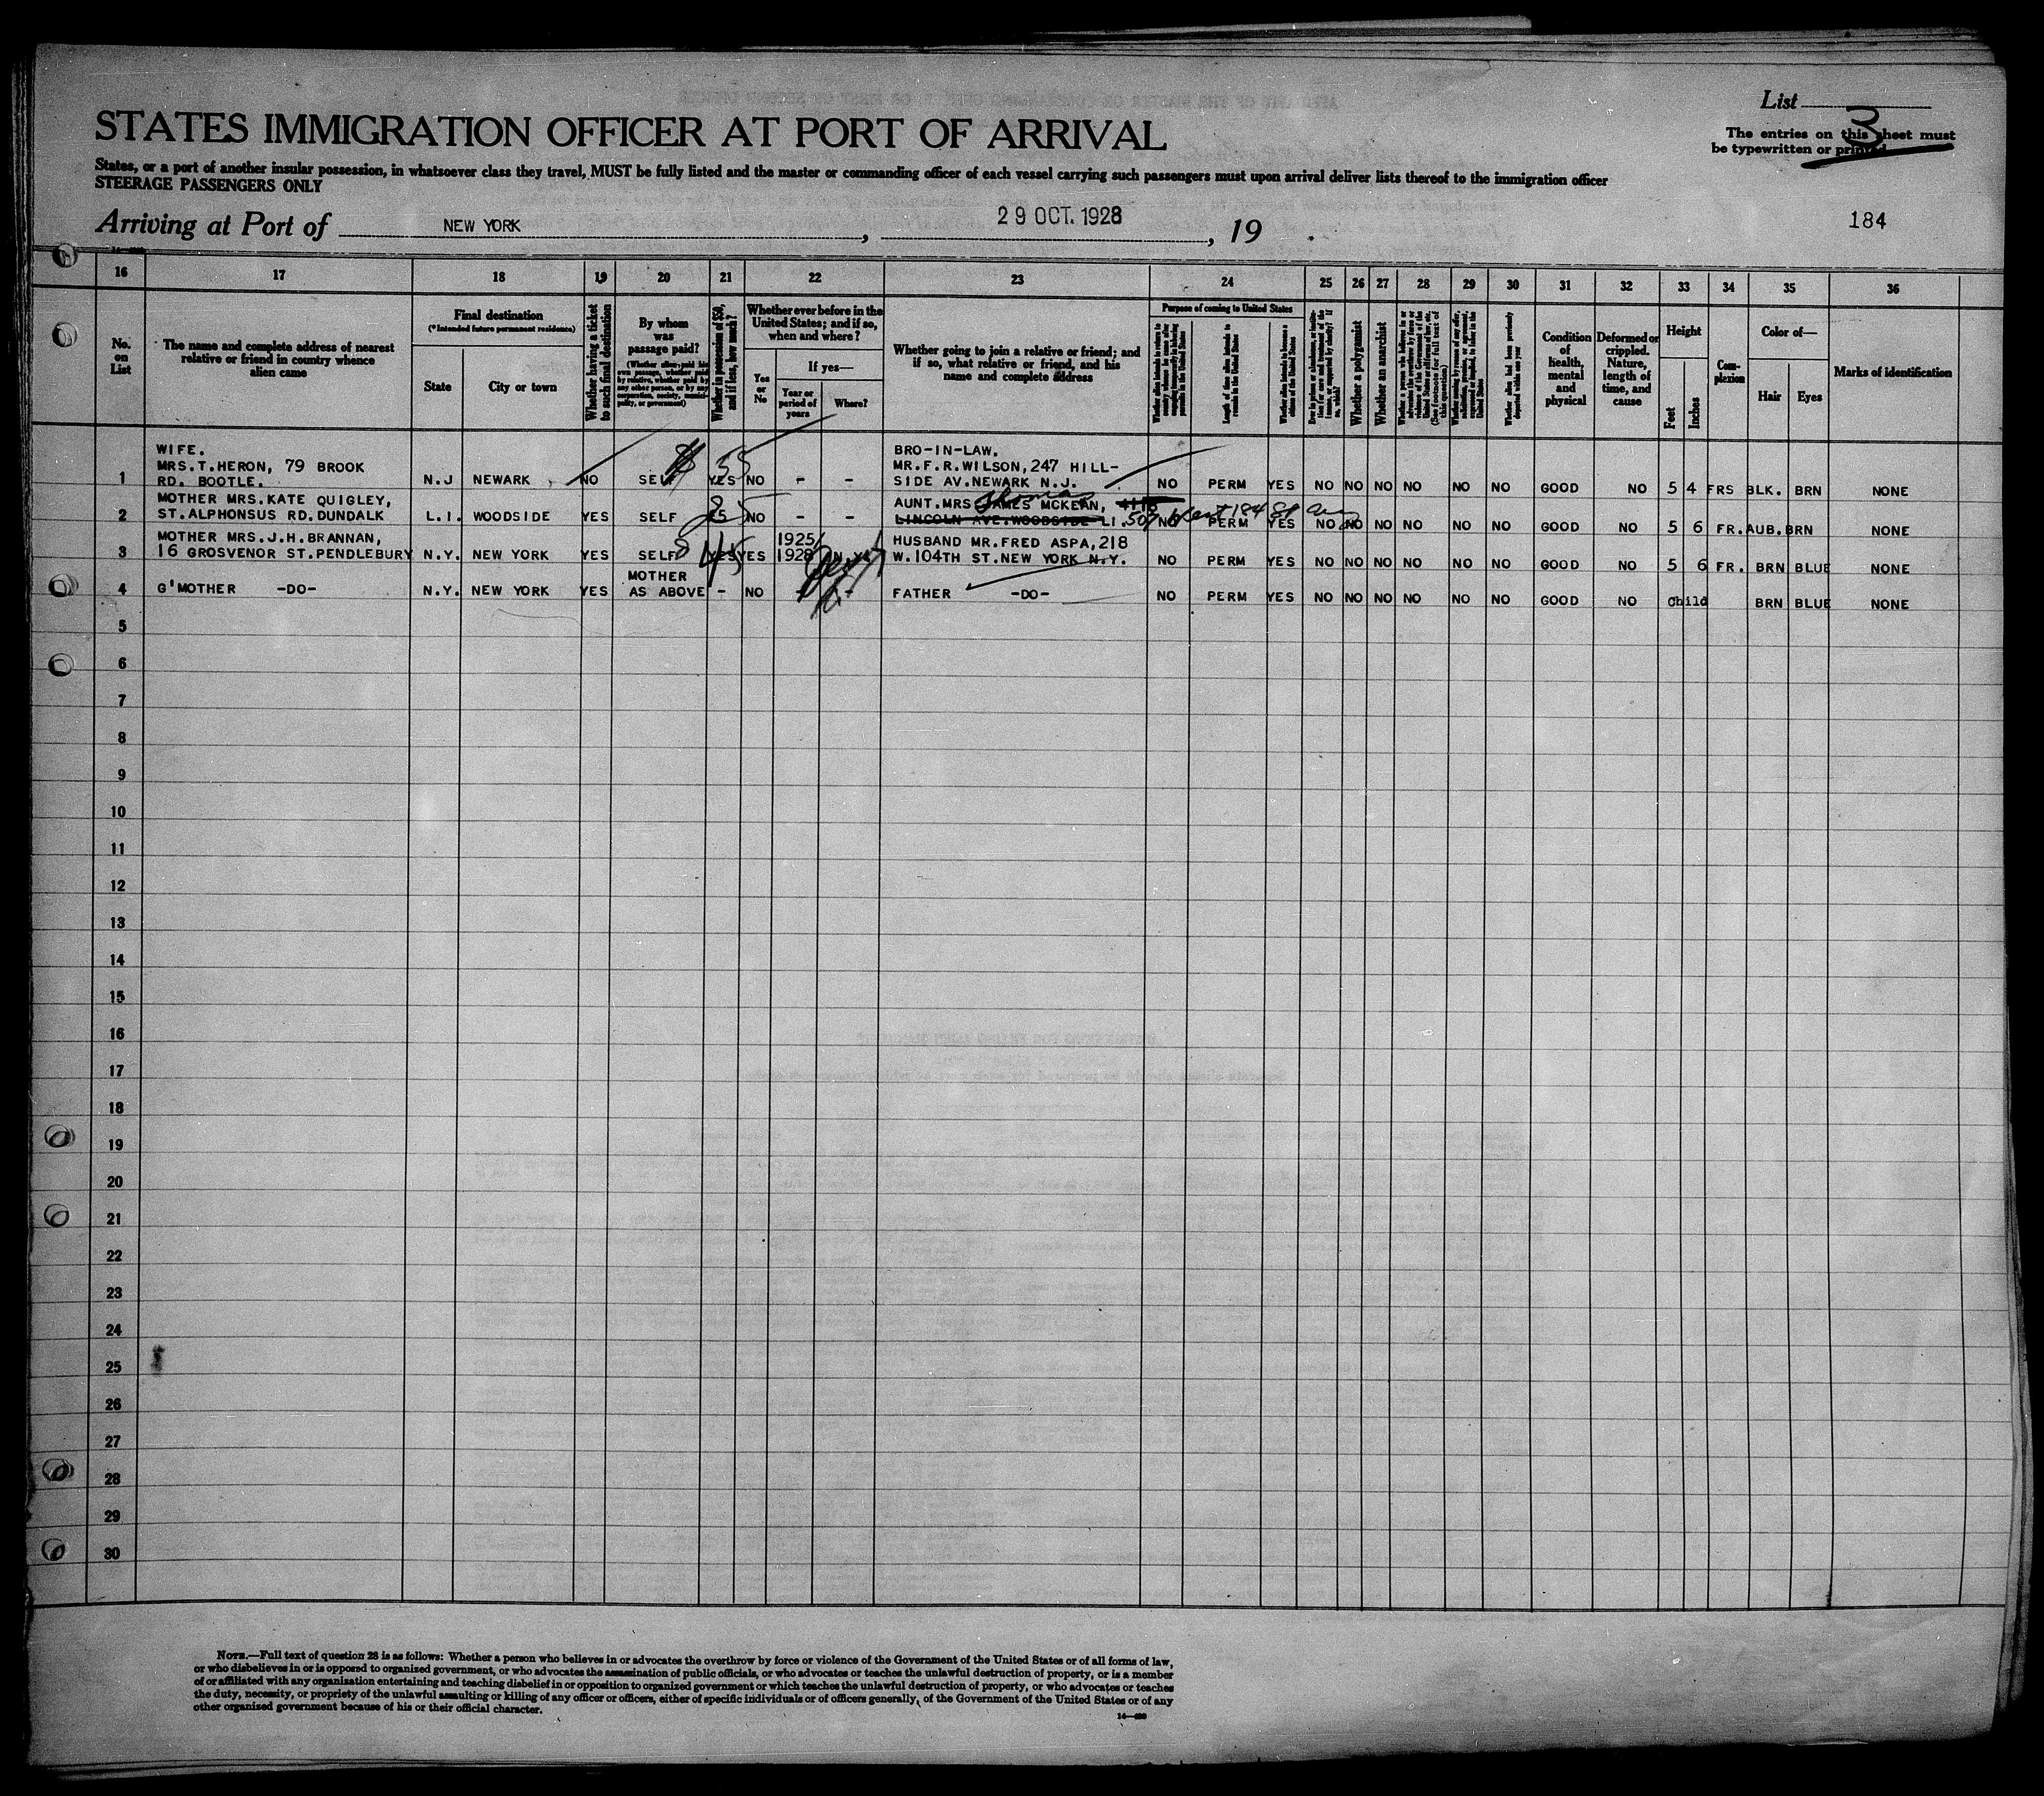 List 3
STATES IMMIGRATION OFFICER AT PORT OF ARRIVAL
The entries on this sheet must
be typewritten or printed
States, or a port of another insular possession, in whatsoever class they travel, MUST be fully listed and the master or commanding officer of each vessel carrying such passengers must upon arrival deliver lists thereof to the immigration officer
STEERAGE PASSENGERS ONLY
Arriving at Port of NEW YORK, 29 OCT. 1928, 19 .
184
16 17 18 19 20 21 22 23 24 25 26 27 28 29 30 31 32 33 34 35 36
No. on List
The name and complete address of nearest relative or friend in country whence alien came
Final destination
(*Intended future permanent residence)
State
City or town
Whether having a ticket to such final destination
By whom was passage paid?
(Whether alien paid his own passage, whether paid by relative, whether paid by any other person, or by any corporation, society, municipality, or government)
Whether in possession of $50, and if less, how much?
Whether ever before in the United States; and if so, when and where?
Yes or No
If yes—
Year or period of years
Where?
Whether going to join a relative or friend; and if so, what relative or friend, and his name and complete address
Purpose of coming to United States
Length of time alien intends to remain in the United States
Whether alien intends to become a citizen of the United States
Whether a polygamist
Whether an anarchist
Whether alien had been previously deported within one year
Condition of health, mental and physical
Deformed or crippled. Nature, length of time, and cause
Height
Feet
Inches
Complexion
Color of—
Hair
Eyes
Marks of identification
WIFE. BRO-IN-LAW.
MRS.T.HERON, 79 BROOK MR.F.R.WILSON,247 HILL-
1 RD. BOOTLE. N.J NEWARK NO SELF YES 35 NO - - SIDE AV.NEWARK N.J. NO PERM YES NO NO NO NO NO NO GOOD NO 5 4 FRS BLK. BRN NONE
MOTHER MRS.KATE QUIGLEY, AUNT.MRS JAMES MCKEAN, Thomas
2 ST.ALPHONSUS RD.DUNDALK L.I. WOODSIDE YES SELF 25 NO - - LINCOLN AVE.WOODSIDE LI. 509 West 184 St NO PERM YES NO NO NO NO NO NO GOOD NO 5 6 FR. AUB. BRN NONE
MOTHER MRS.J.H.BRANNAN, 1925/ HUSBAND MR.FRED ASPA,218
3 16 GROSVENOR ST.PENDLEBURY N.Y. NEW YORK YES SELF YES 45 YES 1928 N.Y. W.104TH ST.NEW YORK N.Y. NO PERM YES NO NO NO NO NO NO GOOD NO 5 6 FR. BRN BLUE NONE
MOTHER
4 G'MOTHER -DO- N.Y. NEW YORK YES AS ABOVE - NO - - FATHER -DO- NO PERM YES NO NO NO NO NO NO GOOD NO Child BRN BLUE NONE
5
6
7
8
9
10
11
12
13
14
15
16
17
18
19
20
21
22
23
24
25
26
27
28
29
30
NOTE.—Full text of question 28 is as follows: Whether a person who believes in or advocates the overthrow by force or violence of the Government of the United States or of all forms of law,
or who disbelieves in or is opposed to organized government, or who advocates the assassination of public officials, or who advocates or teaches the unlawful destruction of property, or is a member
of or affiliated with any organization entertaining and teaching disbelief in or opposition to organized government or which teaches the unlawful destruction of property, or who advocates or teaches
the duty, necessity, or propriety of the unlawful assaulting or killing of any officer or officers, either of specific individuals or of officers generally, of the Government of the United States or of any
other organized government because of his or their official character.